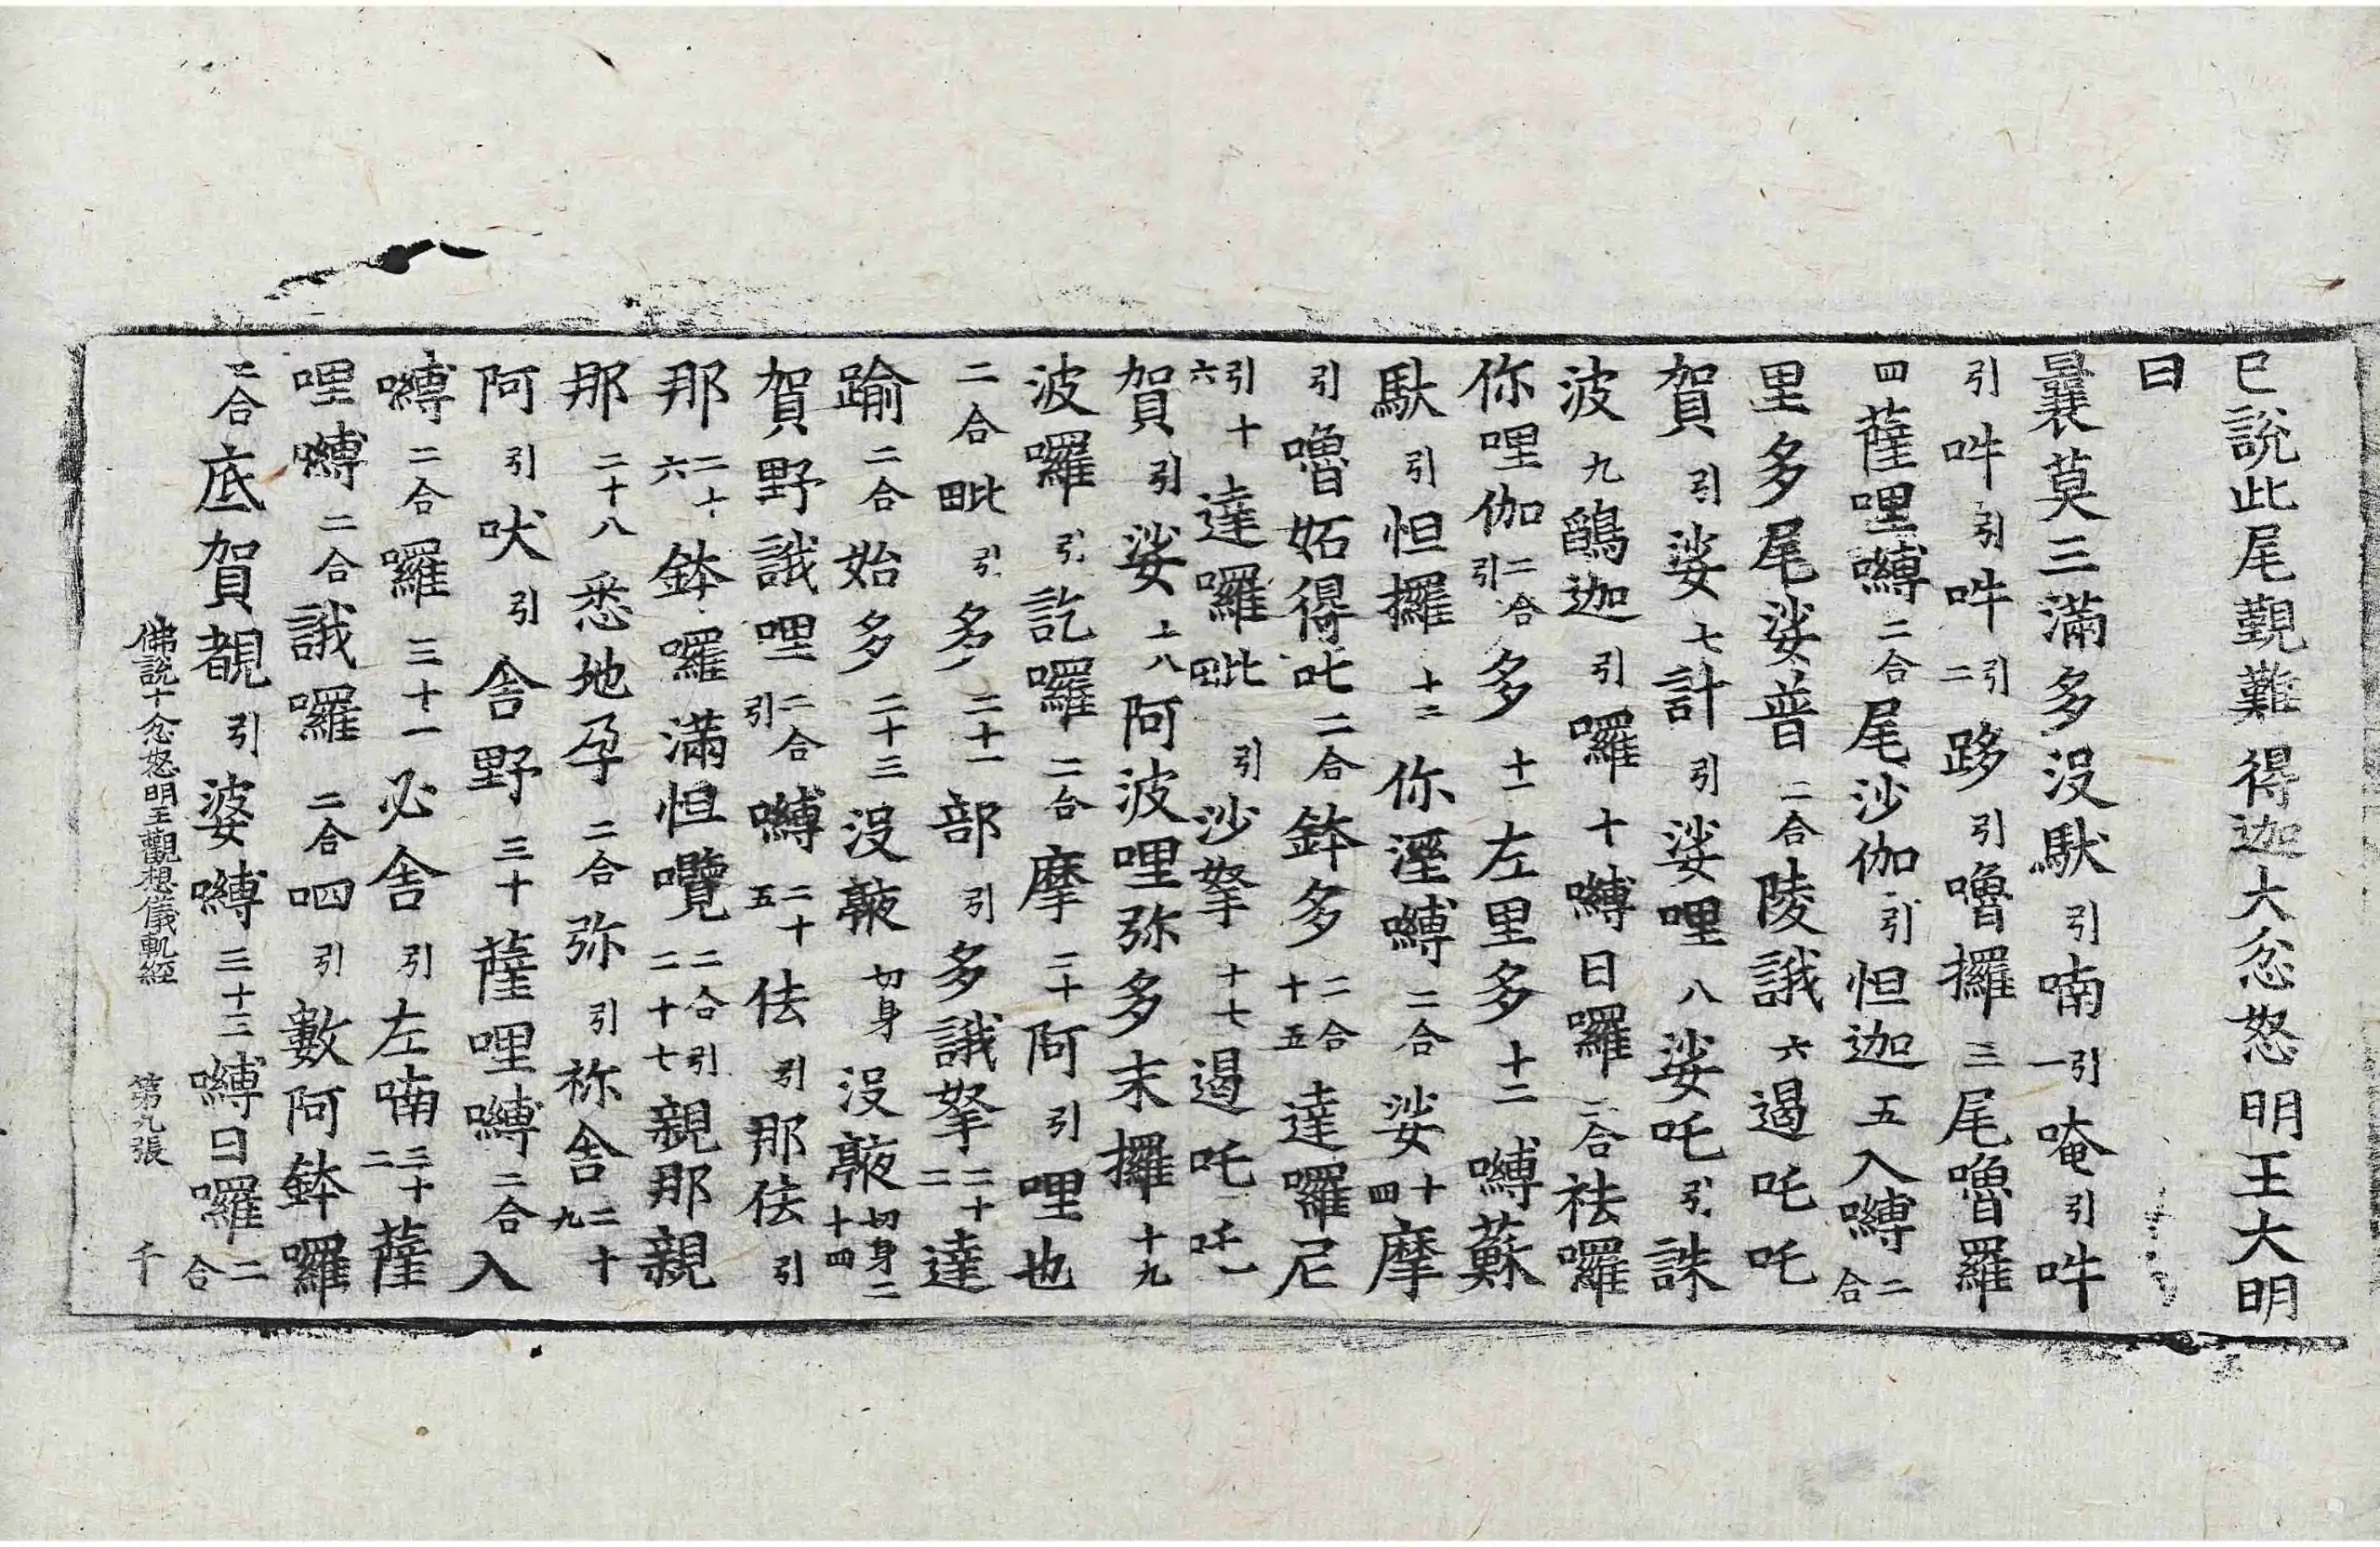 已說此尾覲難得迦大忿怒明王大明
曰
曩莫三滿多沒馱引喃引一唵引吽
引吽引吽引二跢引嚕攞三尾嚕羅
四薩哩嚩二合尾沙伽引怛迦五入嚩二合
里多尾娑普二合陵誐六遏吒吒
賀引娑七計引娑哩八娑吒引誅
波九鶻迦引囉十嚩日囉二合祛囉
你哩伽二合引多十一左里多十二嚩蘇
馱引怛攞十三你溼嚩二合娑十四摩
引嚕妬得叱二合鉢多二合十五達囉尼
引十六達囉毗引沙拏十七遏吒吒
賀引娑十八阿波哩弥多末攞十九
波囉引訖囉二合摩二十阿引哩也
二合毗引多二十一部引多誐拏二十二達
踰二合始多二十三沒䕍切身沒䕍切身二十四
賀野誐哩二合引嚩二十五佉引那佉引
那二十六鉢囉滿怛囕二合引二十七親那親
那二十八悉地孕二合弥引祢舍二十九
阿引吠引舍野三十薩哩嚩二合入
嚩二合囉三十一必舍引左喃三十二薩
哩嚩二合誐囉二合呬引數阿鉢囉
二合底賀覩引婆嚩三十三嚩日囉二合
佛說十忿怒明王觀想儀軌經 第九張 千